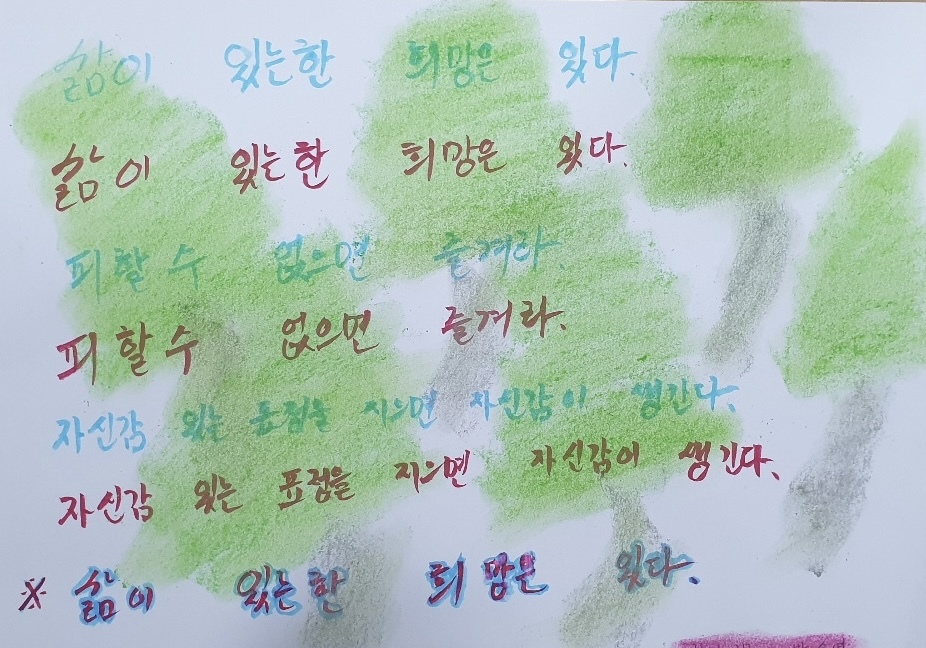 삶이 있는한 희망은 있다.
삶이 있는한 희망은 있다.
피할수 없으면 즐겨라.
피할수 없으면 즐겨라.
자신감 있는 표정을 지으면 자신감이 생긴다.
자신감 있는 표정을 지으면 자신감이 생긴다.
※ 삶이 있는한 희망은 있다.